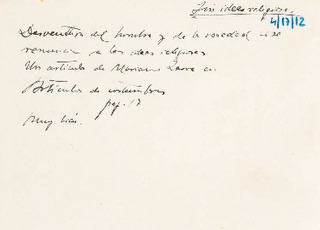 Sin ideas religiosas.
4/17/12
Desventura del hombre y de la sociedad si se
renuncia a las ideas religiosas.
Un artículo de Mariano Larra en
Artículos de costumbres
pag. 17
Muy bien.